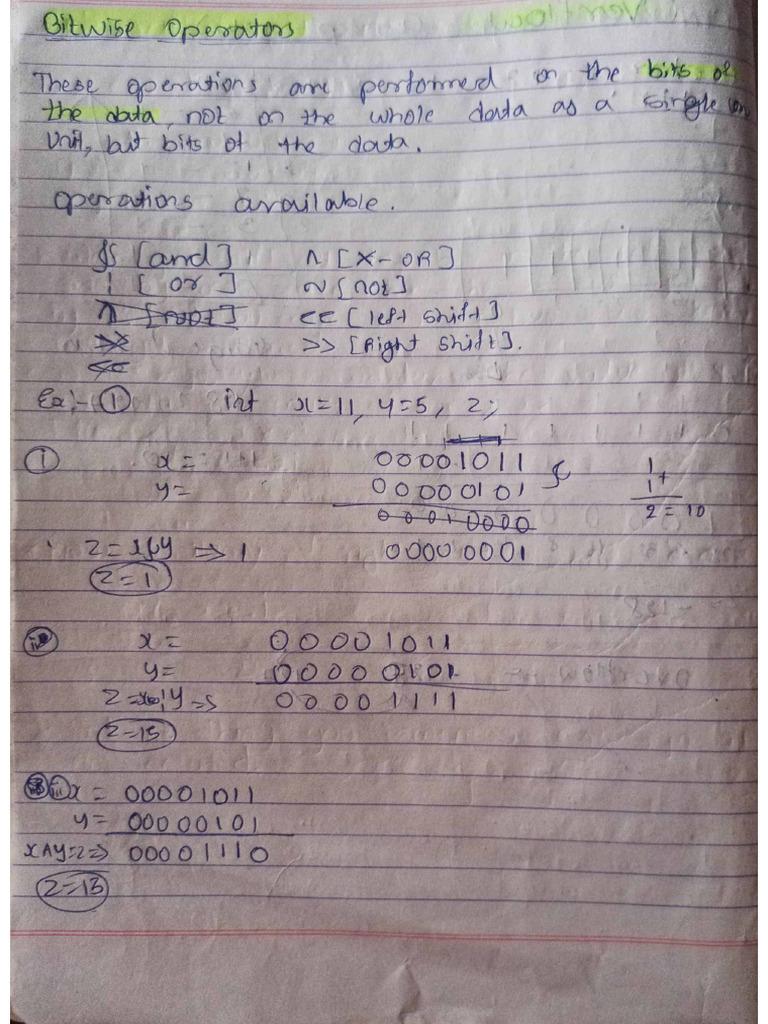 Bitwise Operators
These operations are performed on the bits of
the data, not on the whole data as a single
Unit, but bits of the data.
operations available.
& [and] ^ [X-OR]
| [or] ~ [not]
^ [not] << [left shift]
>> >> [Right shift].
<<
Ex:- ① int x=11, y=5, z;
① x= 00001011 & 1
y= 00000101 1+
00010000 2=10
z=x&y => 1 00000001
z=1
ii x= 00001011
y= 00000101
z=x|y => 00001111
z=15
iii x= 00001011
y= 00000101
x^y=z=> 00001110
z=13